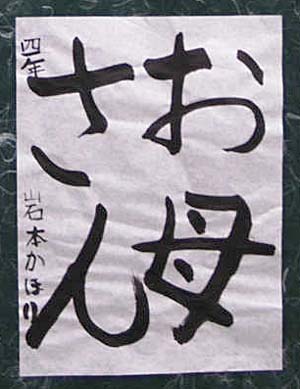 お母
さん
四年 岩本かほり